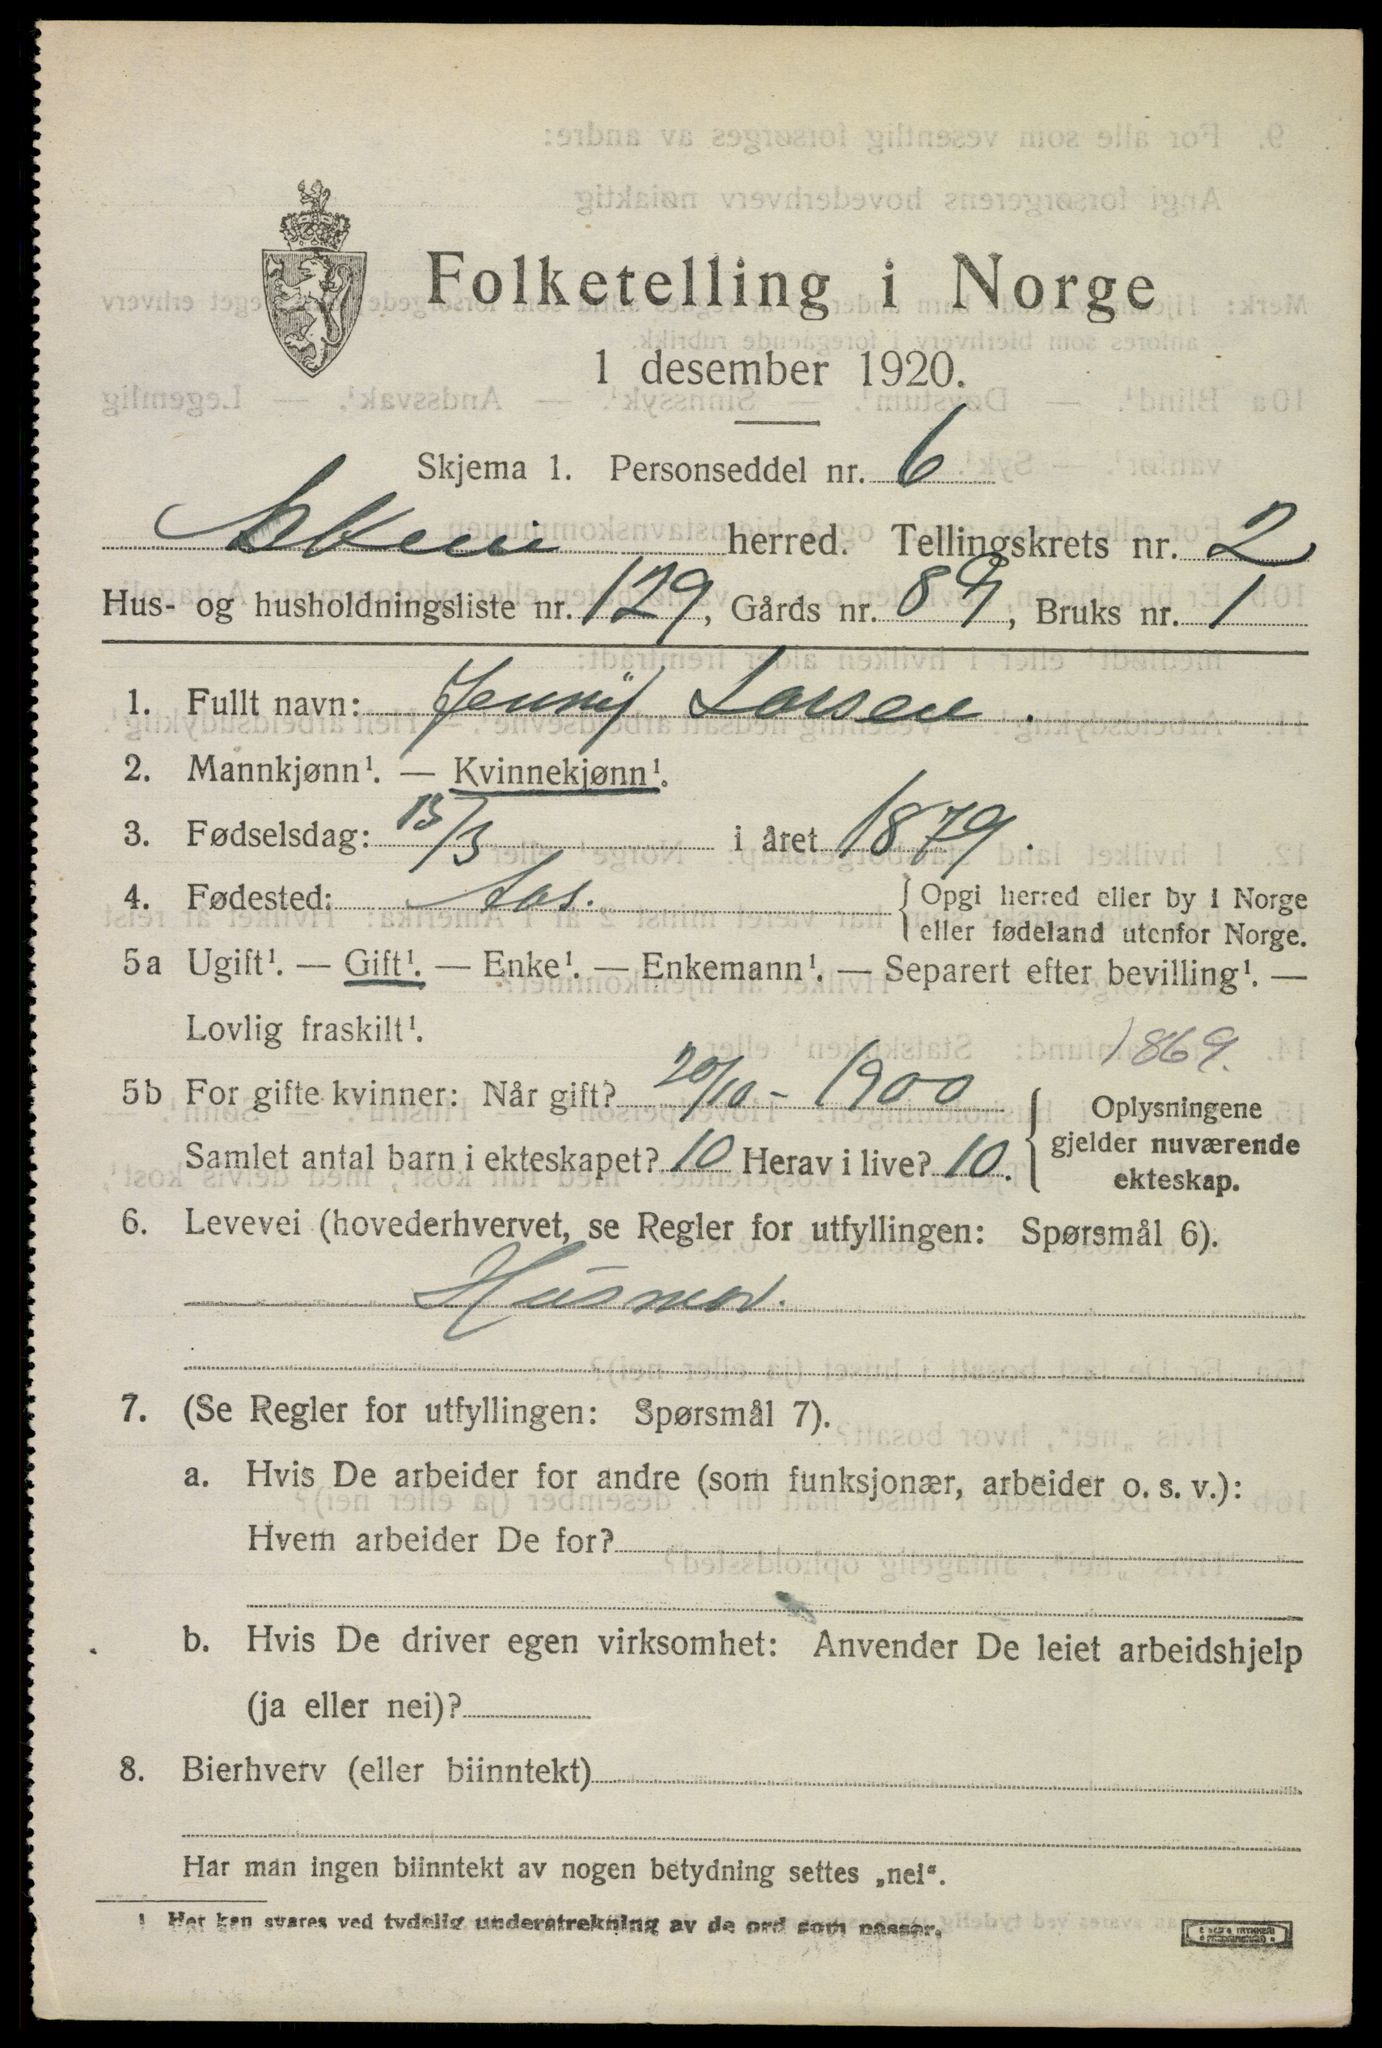 Folketelling i Norge
1 desember 1920.
Skjema 1. Personseddel nr. 6
Askim herred. Tellingskrets nr. 2
Hus- og husholdningsliste nr. 129, Gårds nr. 89, Bruks nr. 1
1. Fullt navn: Jenny Larsen.
2. Mannkjønn¹. — Kvinnekjønn¹.
3. Fødselsdag: 13/3 i året 1879.
4. Fødested: Aas. Opgi herred eller by i Norge
eller fødeland utenfor Norge.
5a Ugift¹. — Gift¹. — Enke¹. — Enkemann¹. — Separert efter bevilling¹. —
Lovlig fraskilt¹.
1869.
5b For gifte kvinner: Når gift? 20/10 - 1900
Samlet antal barn i ekteskapet? 10 Herav i live? 10.
Oplysningene
gjelder nuværende
ekteskap.
6. Levevei (hovederhvervet, se Regler for utfyllingen: Spørsmål 6).
Husmor.
7. (Se Regler for utfyllingen: Spørsmål 7).
a. Hvis De arbeider for andre (som funksjonær, arbeider o. s. v.):
Hvem arbeider De for?
b. Hvis De driver egen virksomhet: Anvender De leiet arbeidshjelp
(ja eller nei)?
8. Bierhverv (eller biinntekt)
Har man ingen biinntekt av nogen betydning settes „nei“.
¹ Her kan svares ved tydelig understrekning av de ord som passer.